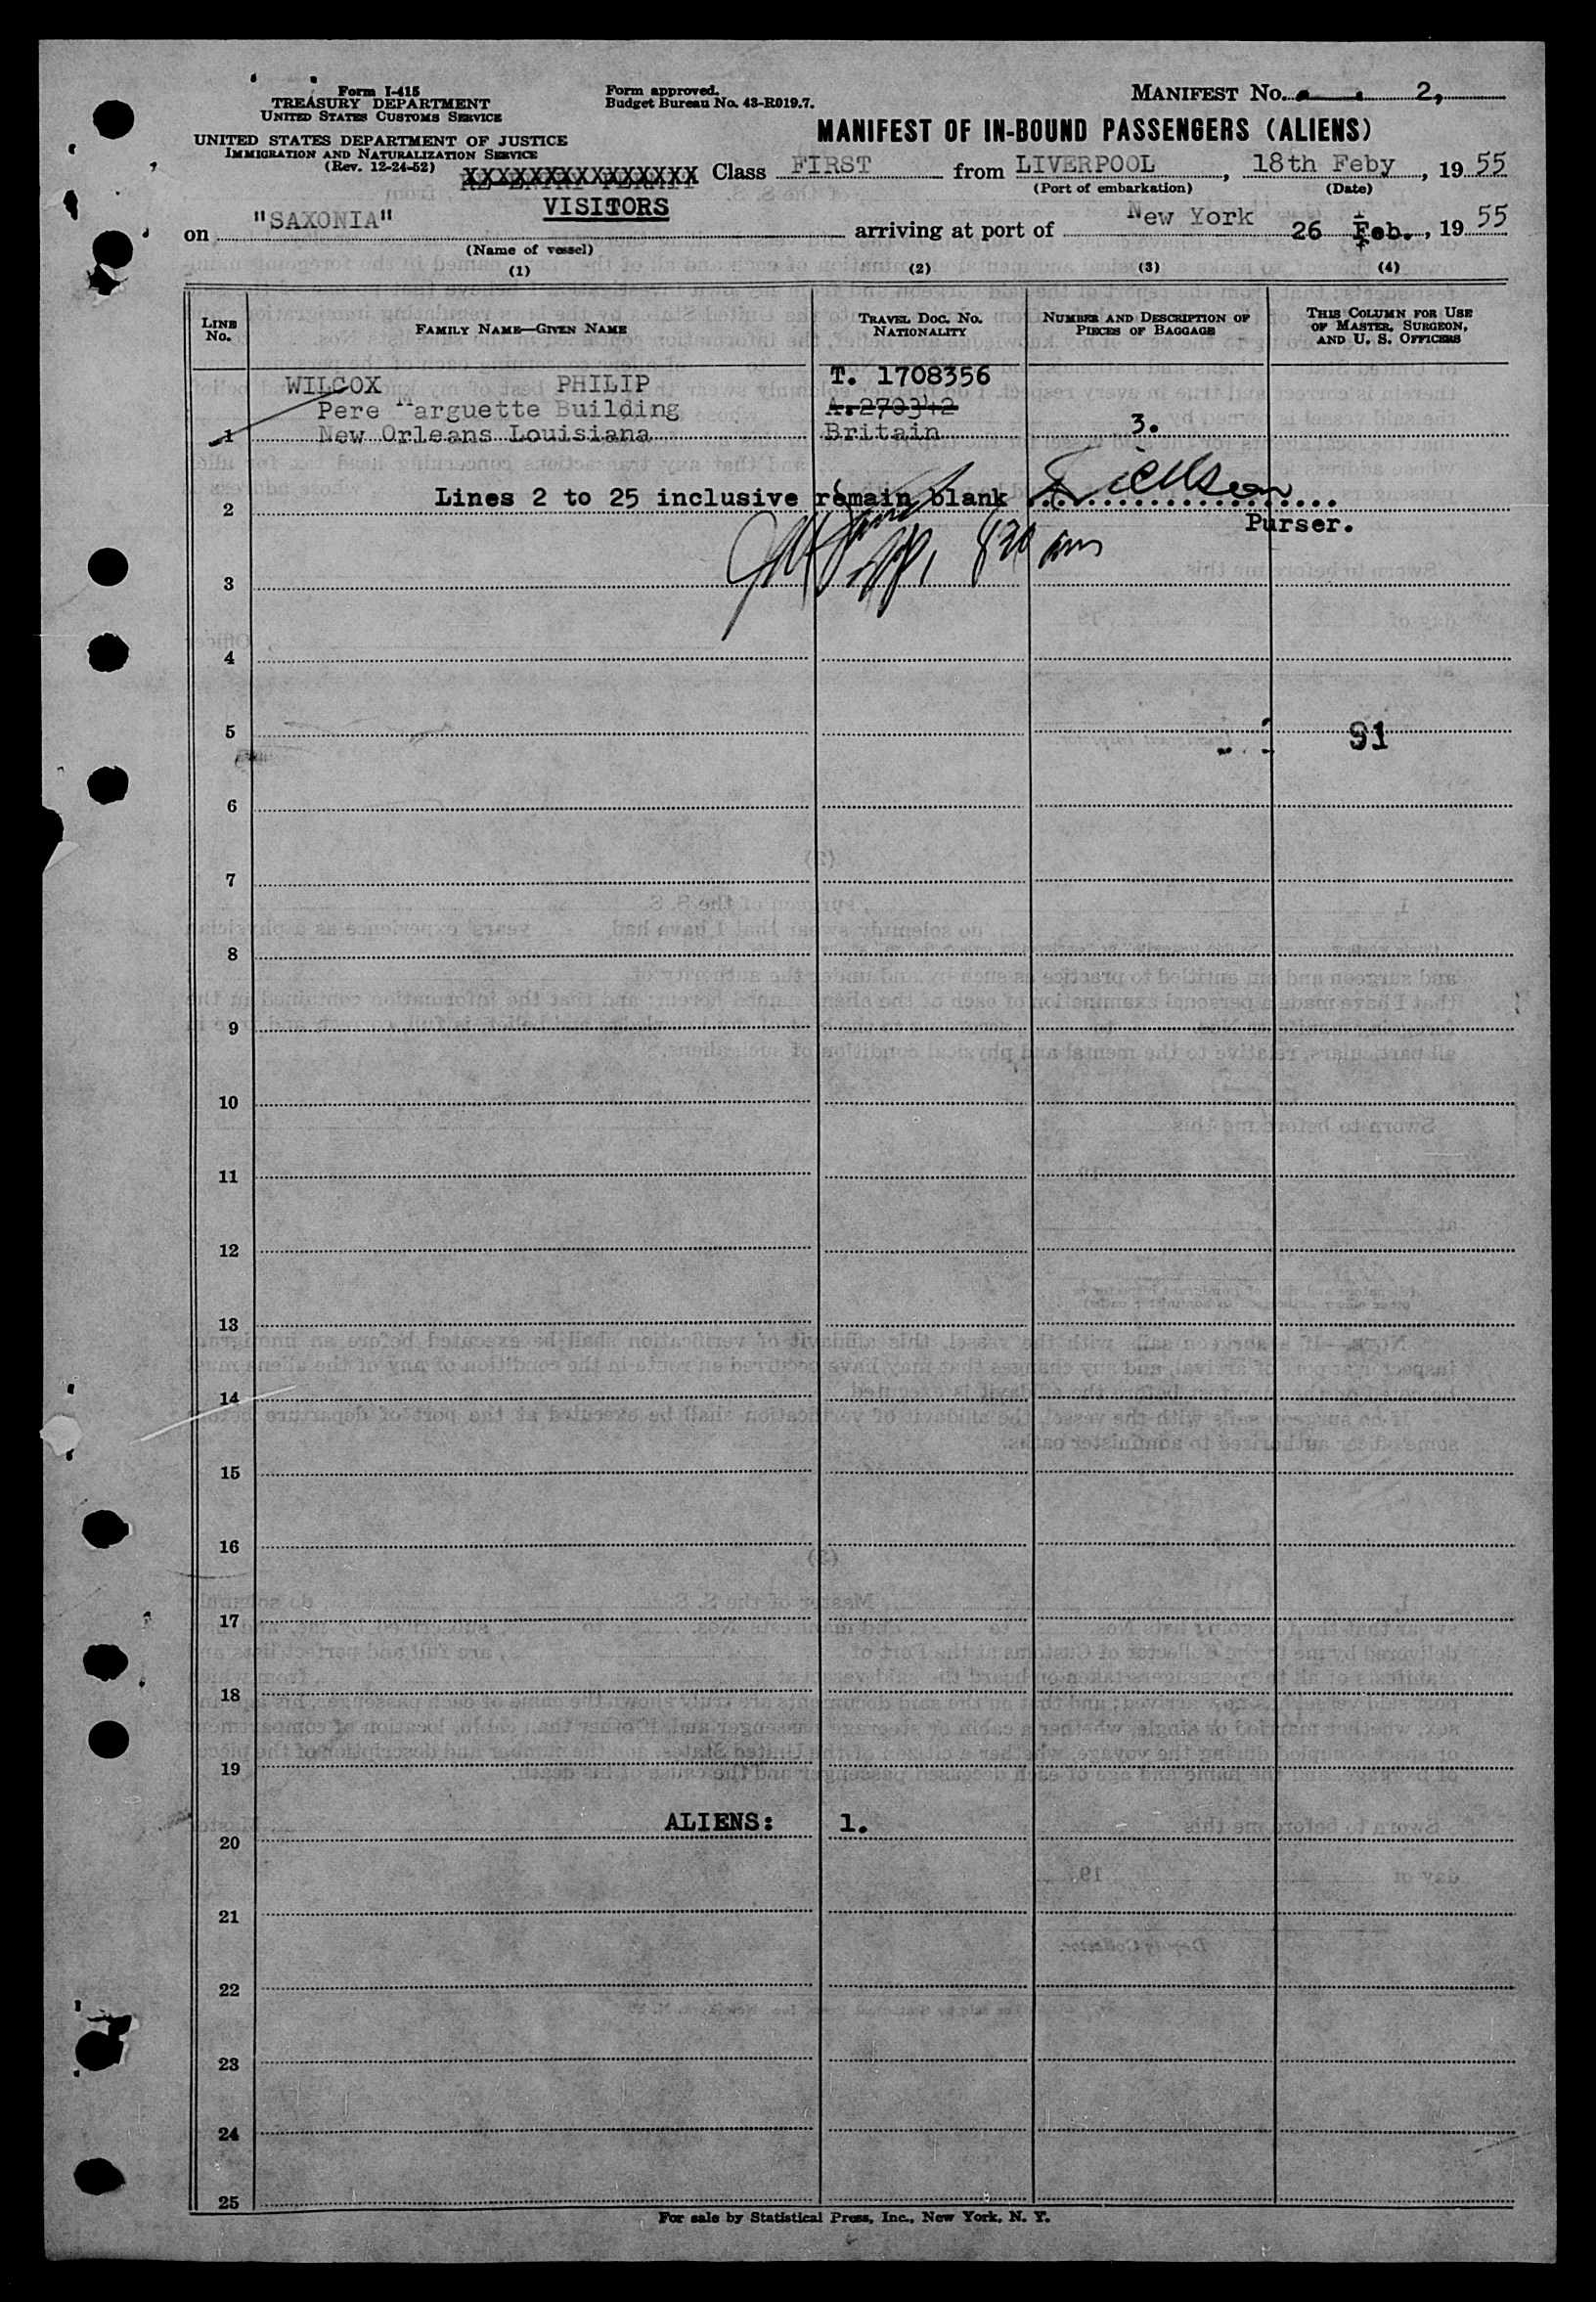 Form I-415
TREASURY DEPARTMENT
UNITED STATES CUSTOMS SERVICE
UNITED STATES DEPARTMENT OF JUSTICE
IMMIGRATION AND NATURALIZATION SERVICE
(Rev. 12-24-52)
Form approved.
Budget Bureau No. 43-R019.7.
MANIFEST No. 2,
MANIFEST OF IN-BOUND PASSENGERS (ALIENS)
XXXXXXXXXXXXXXX Class FIRST from LIVERPOOL, 18th Feby, 1955
(Port of embarkation) (Date)
VISITORS
on "SAXONIA" arriving at port of New York 26 Feb., 1955
(Name of vessel)
(1) (2) (3) (4)
LINE No. FAMILY NAME—GIVEN NAME TRAVEL DOC. No. NATIONALITY NUMBER AND DESCRIPTION OF PIECES OF BAGGAGE THIS COLUMN FOR USE OF MASTER, SURGEON, AND U. S. OFFICERS
WILCOX PHILIP T. 1708356
Pere Marguette Building A.270342
1 New Orleans Louisiana Britain 3.
2 Lines 2 to 25 inclusive remain blank
Purser.
830 am
3
4
5 91
6
7
8
9
10
11
12
13
14
15
16
17
18
19
20 ALIENS: 1.
21
22
23
24
25
For sale by Statistical Press, Inc., New York, N. Y.